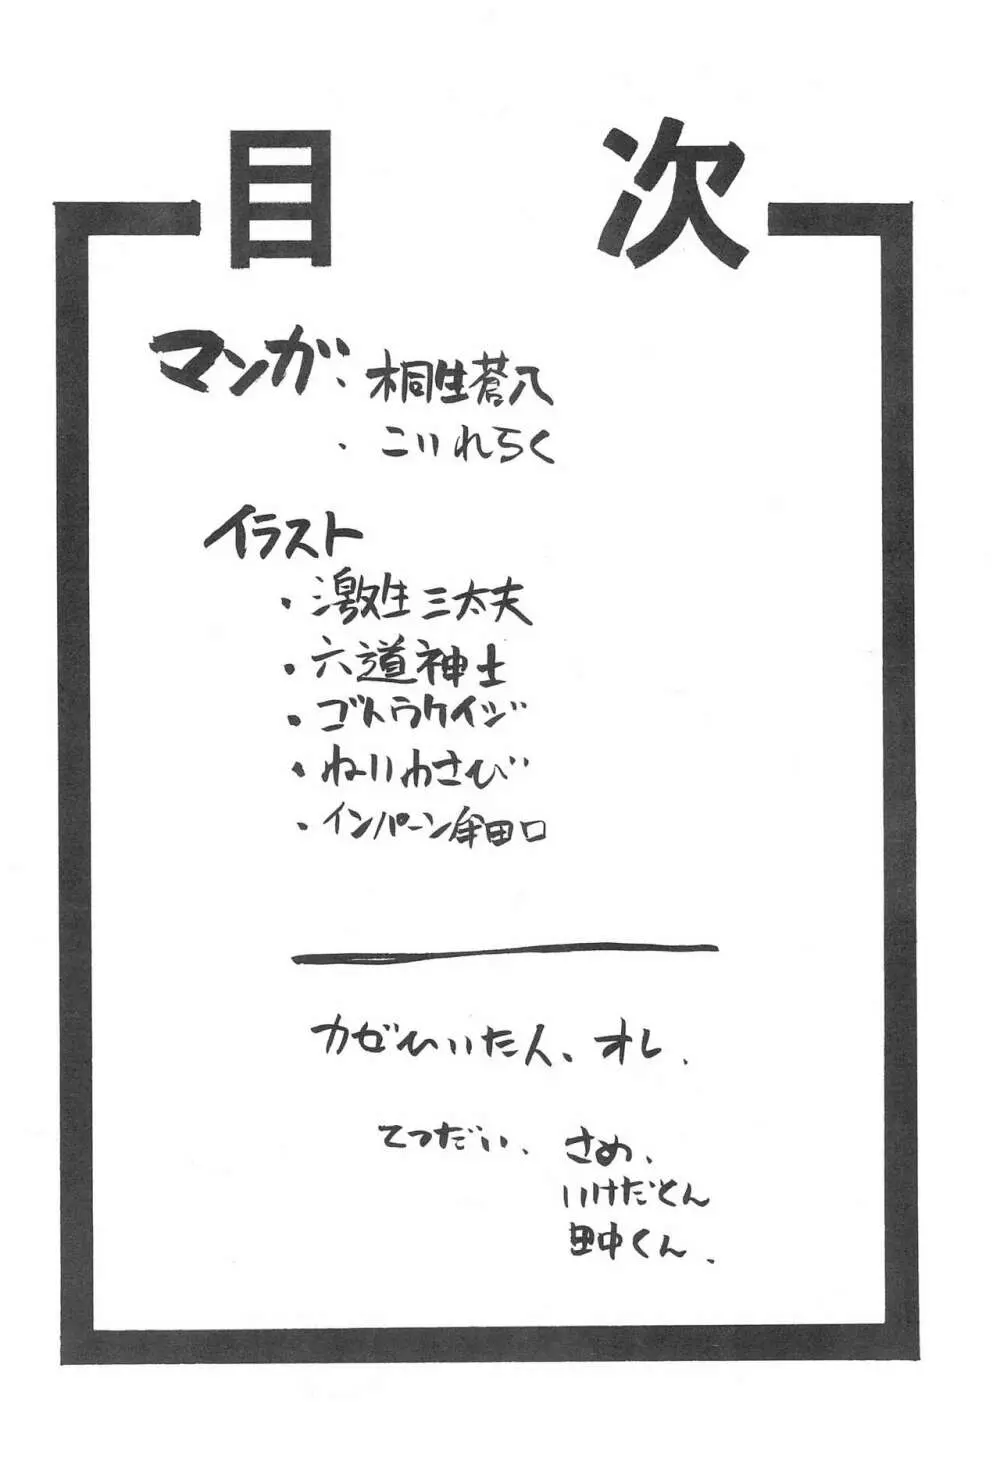 目次
マンガ、桐生蒼八
・こいれらく
イラスト
・激生三太夫
・六道神士
・ゴトウケイジ
・ねりわさび
・インパーン牟田口
カゼひいた人、オレ.
てつだい、さめ、
いけだとん
田中くん.